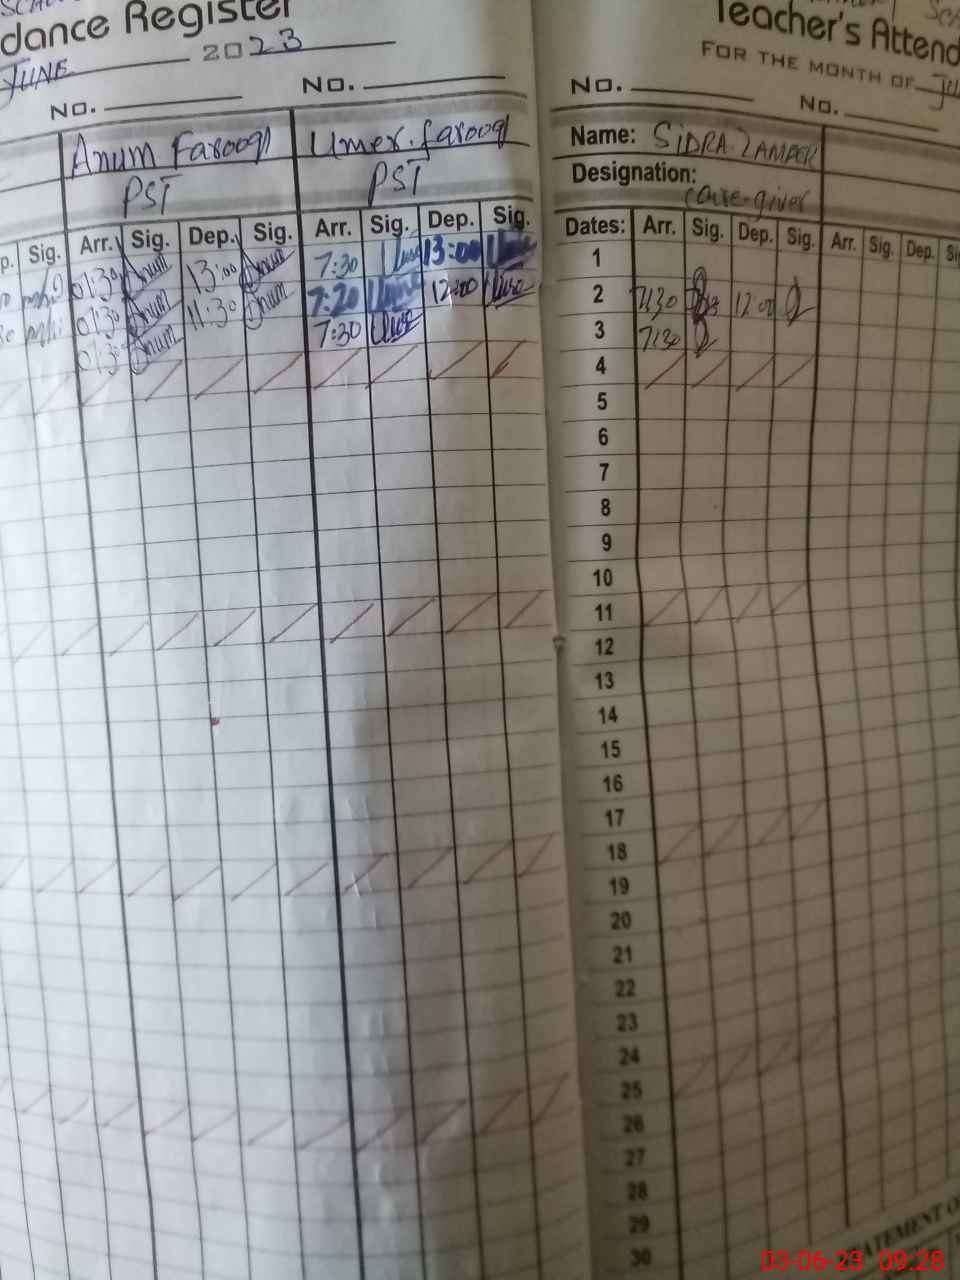 dance Register
JUNE 2023
No.
No.
Anum Farooq
Umer.farooq
PST
PST
p. Sig. Arr. Sig. Dep. Sig. Arr. Sig. Dep. Sig.
07:30 Anum 13:00 Anum 7:30 13:00
07:30 Anum 11:30 Anum 7:20 12:00
07:30 Anum 7:30
Teacher's Attend
FOR THE MONTH OF
No.
No.
Name: SIDRA
Designation: care-giver
Dates: Arr. Sig. Dep. Sig. Arr. Sig. Dep.
1
2 7:30 12:00
3 7:30
4
5
6
7
8
9
10
11
12
13
14
15
16
17
18
19
20
21
22
23
24
25
26
27
28
29
30
03-06-23 09:28